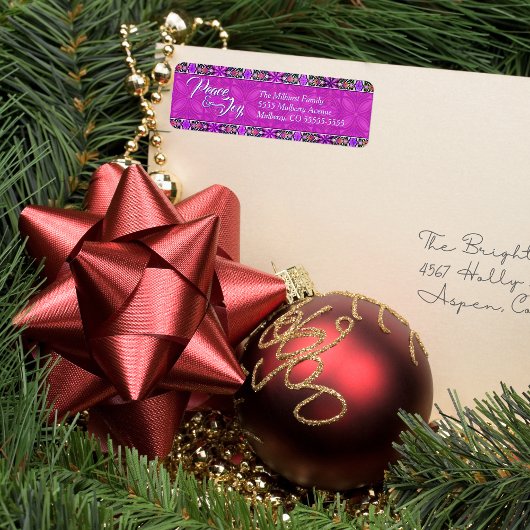 Peace
& Joy
The Milhurst Family
5555 Mulberry Avenue
Mulberry, CO 55555-5555
The Bright
4567 Holly
Aspen, Co